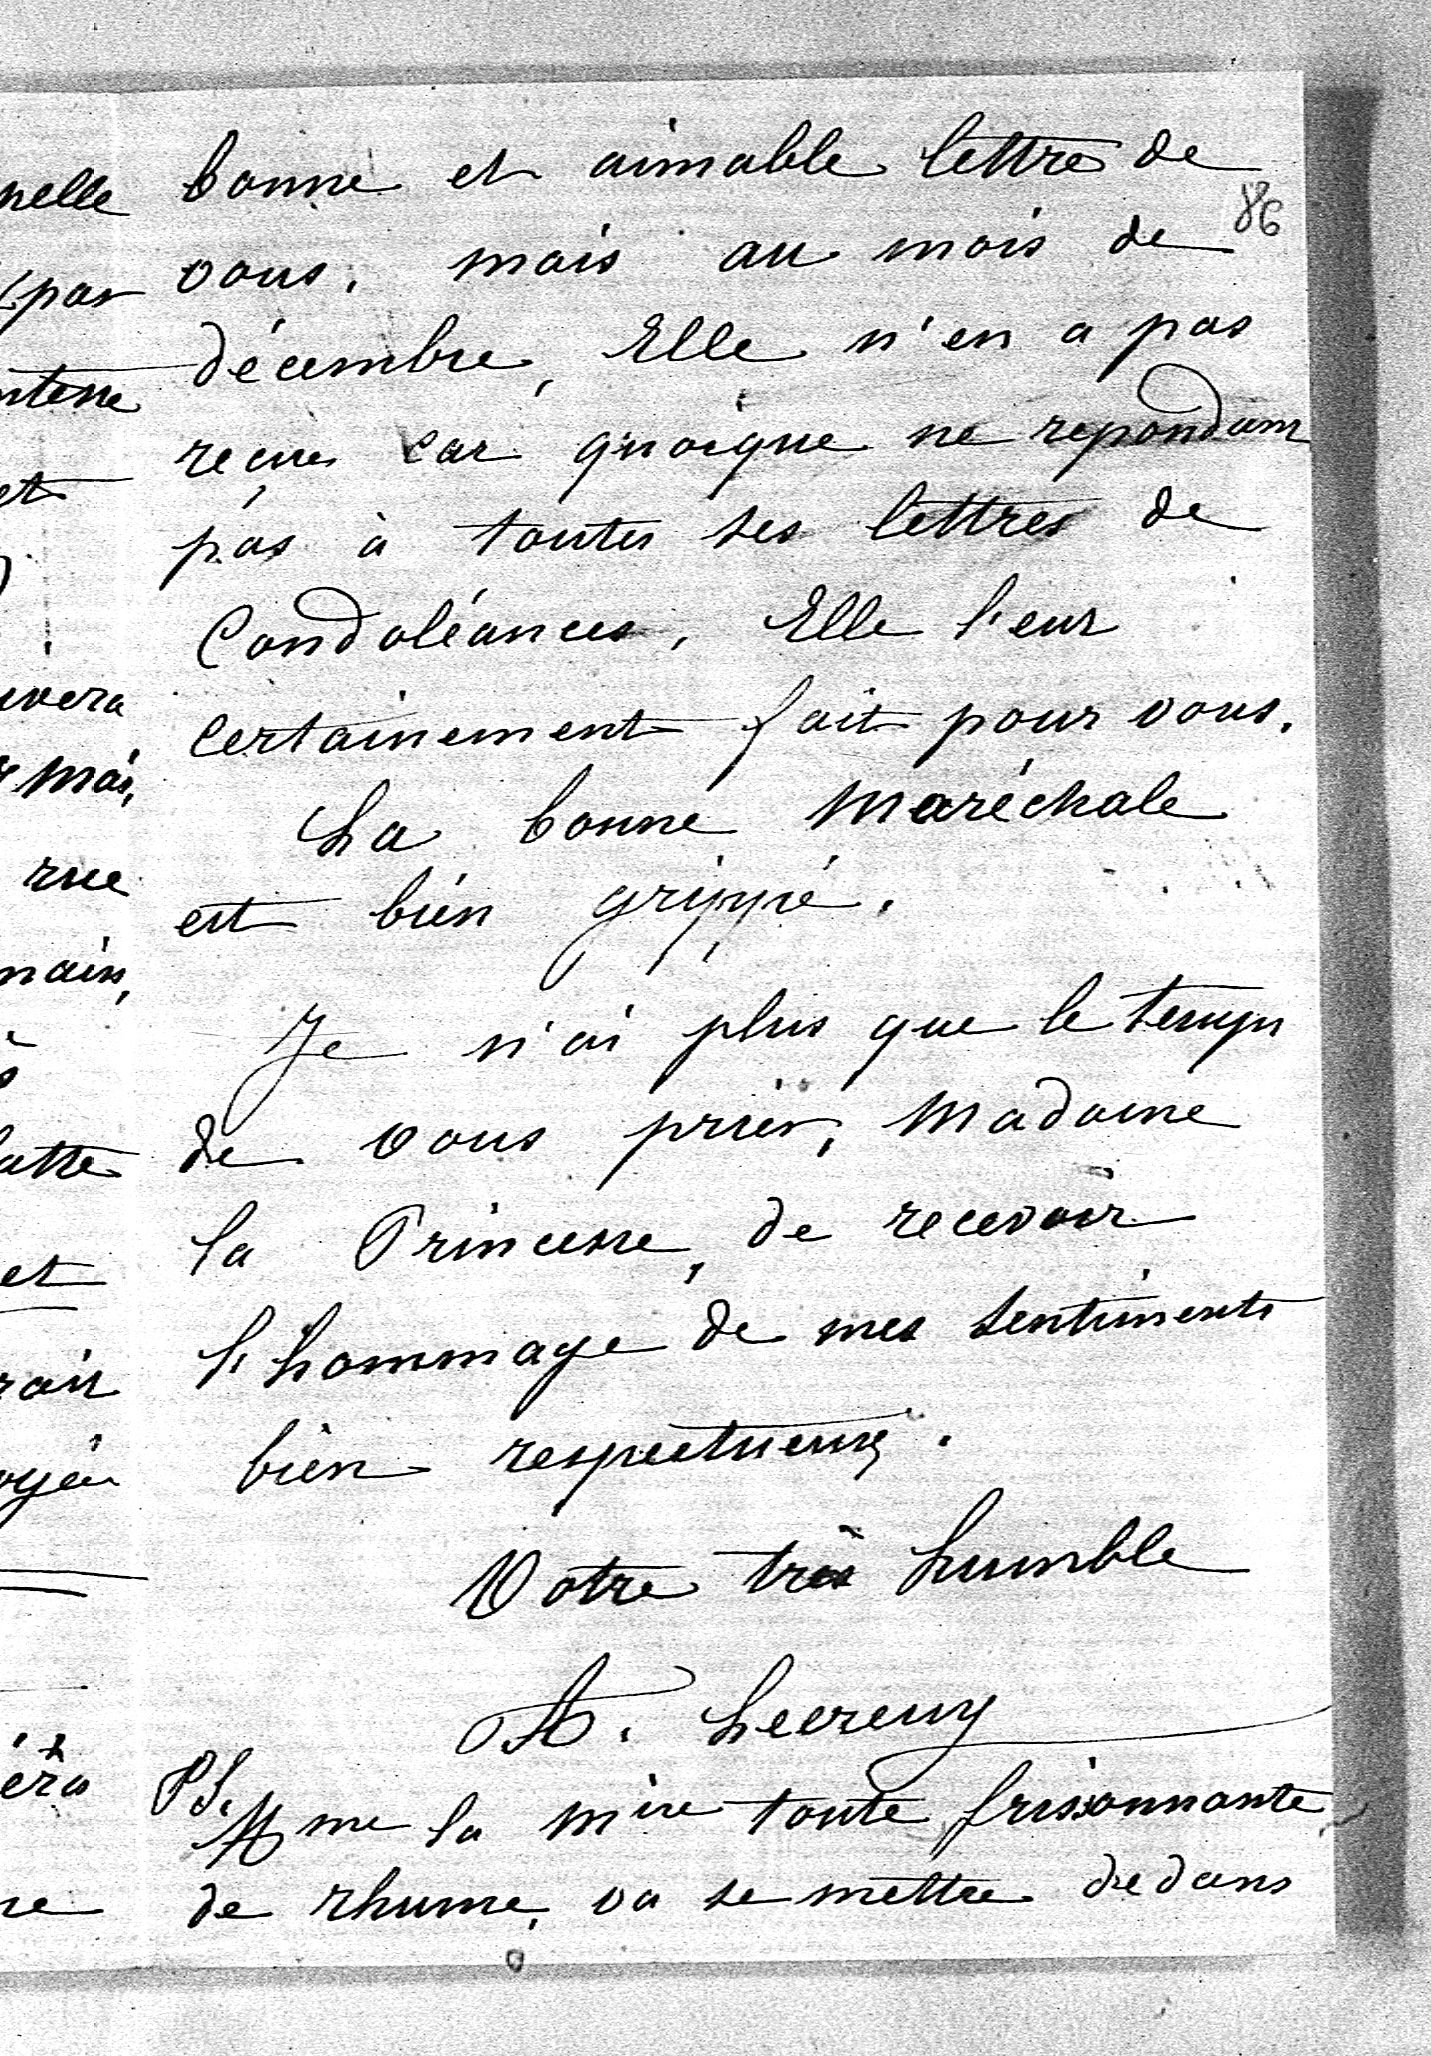 bonne et aimable lettre de
86
vous. mais au mois de
décembre, Elle n'en a pas
reçue car quoique ne repondant
pas à toutes ses lettres de
Condoléances, Elle l'eut
certainement fait pour vous.
La bonne Maréchale
est bien grippé.
Je n'ai plus que le temps
de vous prier, Madame
la Princesse, de recevoir
l'hommage de mes sentiments
bien respectueux.
Votre très humble
PS. Mme la mère toute frissonnante
de rhume, va se mettre dedans